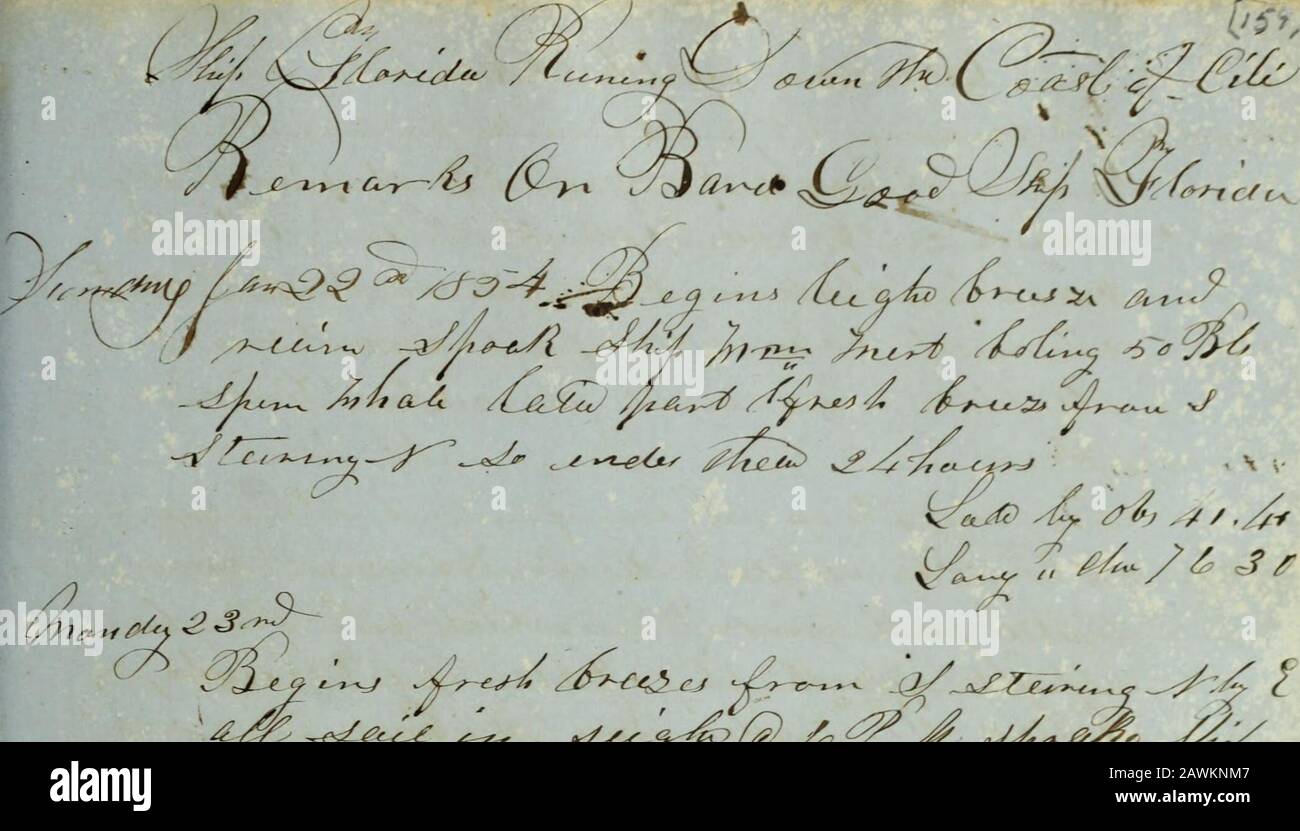 [159]
Ship Florida Runing Down the Coast of Cili
Remarks On Bard Good Ship Florida
Sunday Jan 22nd 1854. Begins light breeze and
Spoak Ship Wm boling 50 Bls
Sperm Whale Later part fresh breeze from S
Steiring N so endes these 24 hours
Latd by obs 41.
Long " Chr 76 30
Monday 23rd
Begins fresh breezes from S Steiring N by E
all sail in P M
alamy
Image ID: 2AWKNM7
www.alamy.com